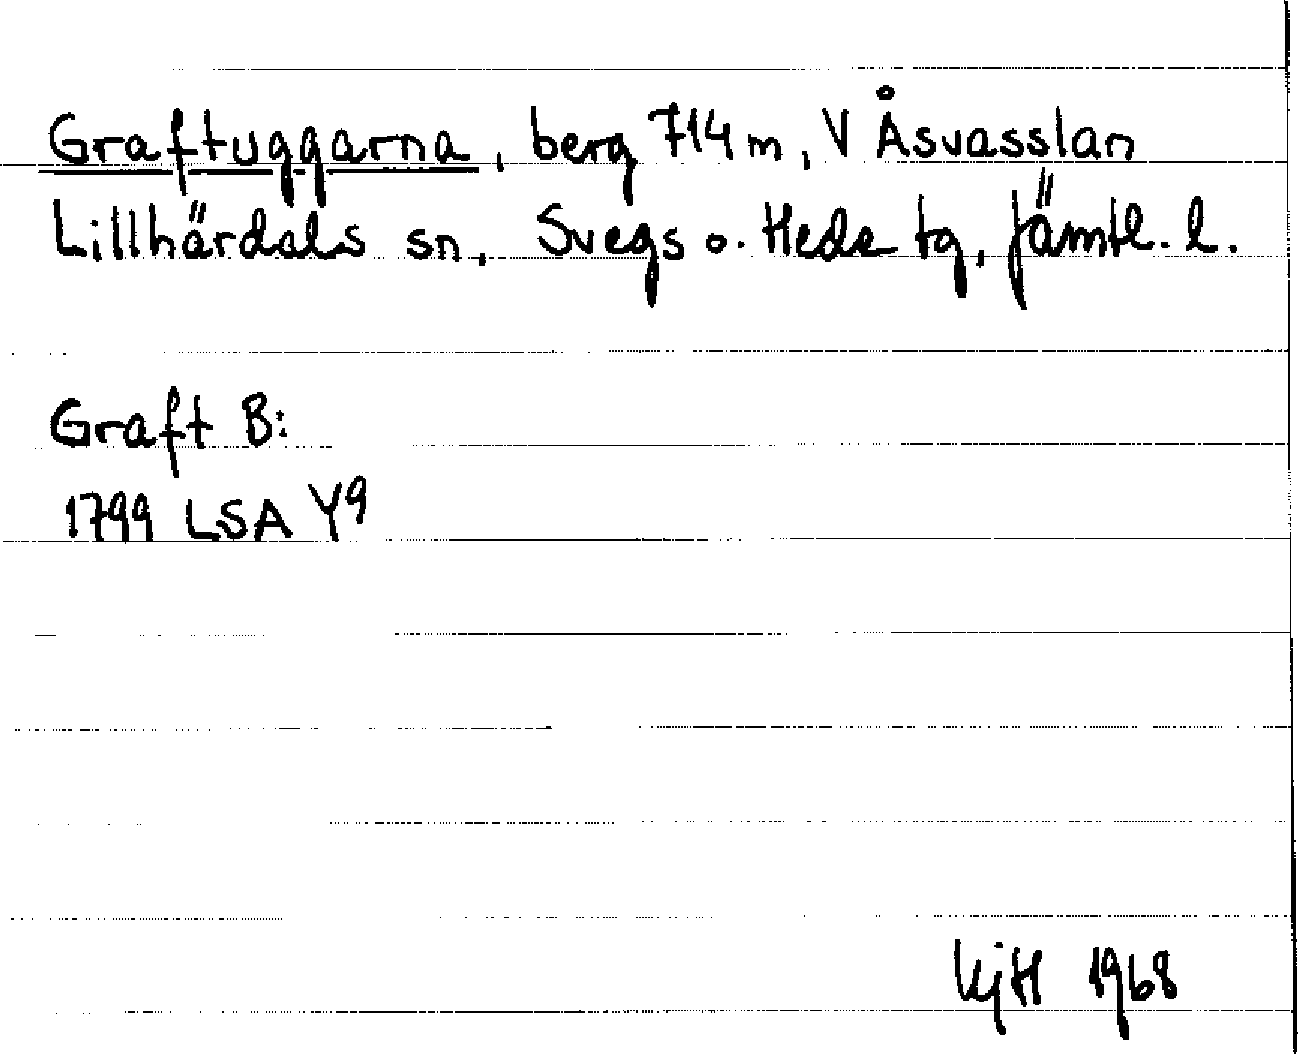 Graftuggarna, berg 714 m, V Åsvasslan
Lillhärdals sn, Svegs o. Heds tg, Jämtl. l.
Graft B:
1799 LSA Y9
KjH 1968